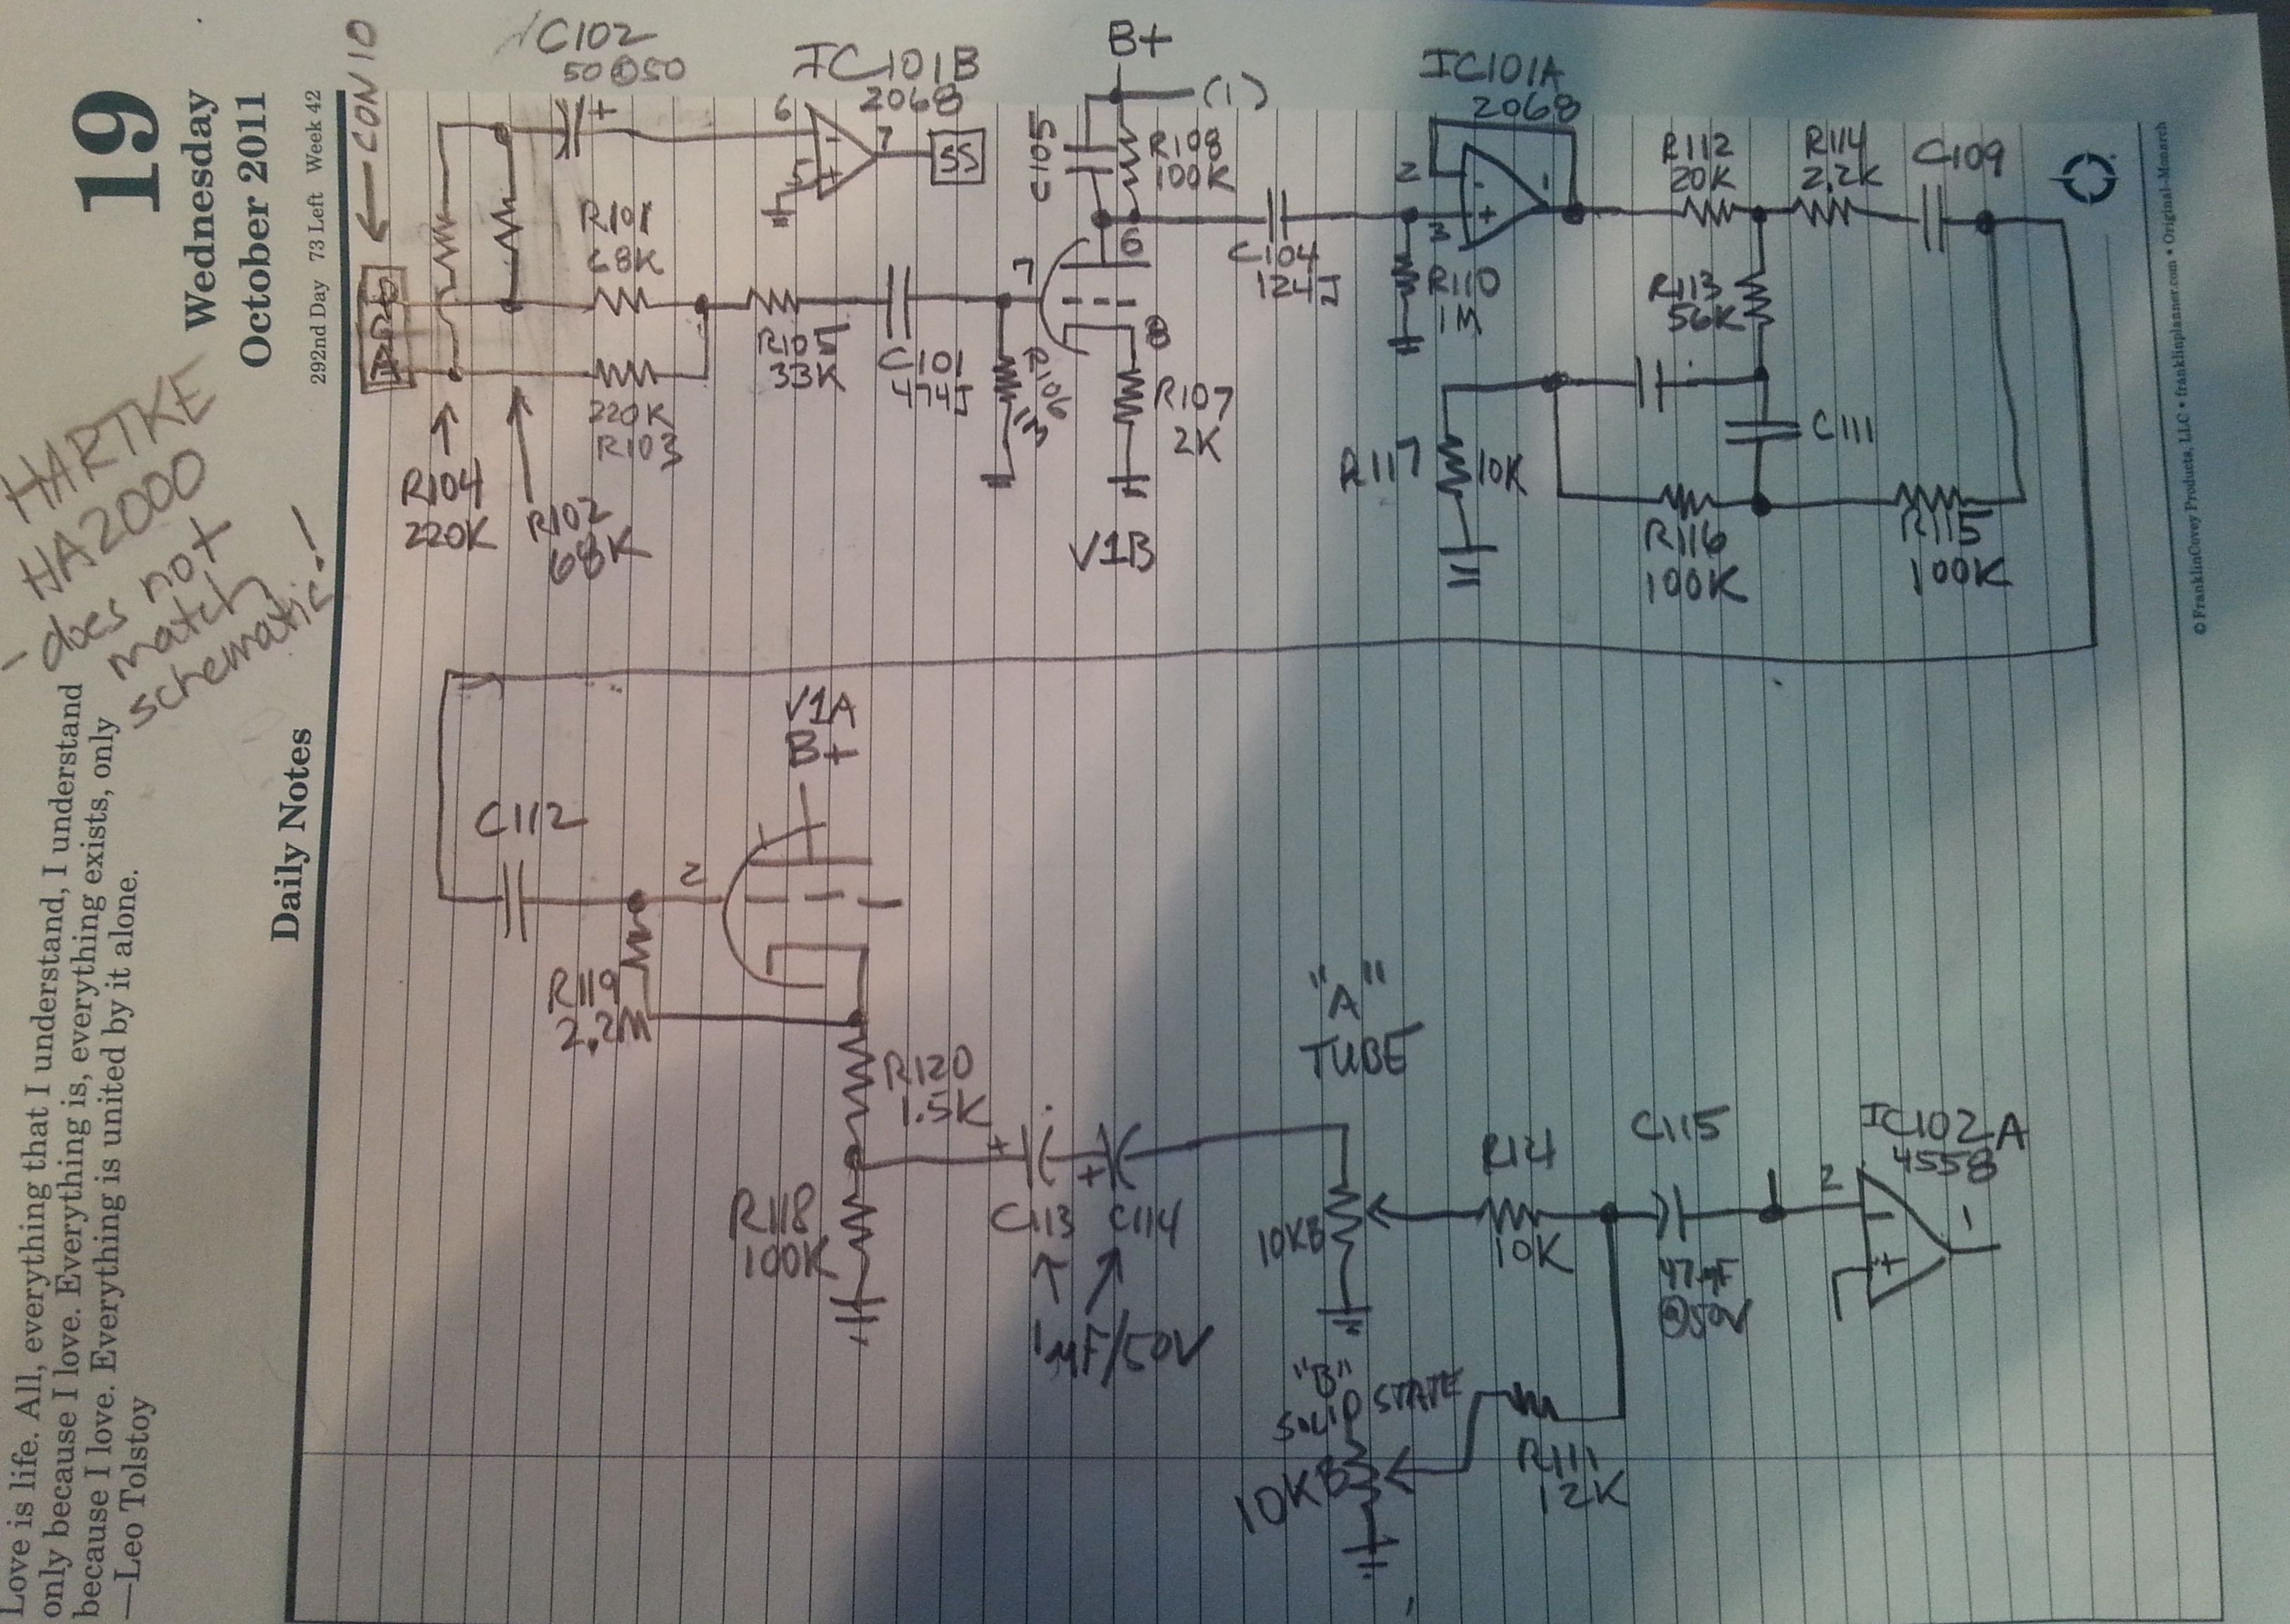 19
Wednesday
October 2011
292nd Day 73 Left Week 42
HARTKE
HA2000
- does not
match
schematic!
Love is life. All, everything that I understand, I understand
only because I love. Everything is, everything exists, only
because I love. Everything is united by it alone.
—Leo Tolstoy
Daily Notes
← CON 10
C102
50@50
IC101B
2068
6
-
5
+
7
SS
B+
(1)
C105
R108
100K
IC101A
2068
2
-
3
+
1
R112
20K
R114
2.2K
C109
R101
68K
R105
33K
C101
474J
7
6
8
R106
1M
R107
2K
V1B
C104
124J
R110
1M
R113
56K
C111
220K
R103
R104
220K
R102
68K
R117
10K
R116
100K
R115
100K
V1A
B+
C112
2
R119
2.2M
R120
1.5K
R118
100K
+
+
C113
C114
1µF/50V
"A"
TUBE
10KB
R121
10K
C115
47µF
@50V
IC102A
4558
2
-
+
1
"B"
SOLID STATE
10KB
R111
12K
© FranklinCovey Products, LLC • franklinplanner.com • Original–Monarch